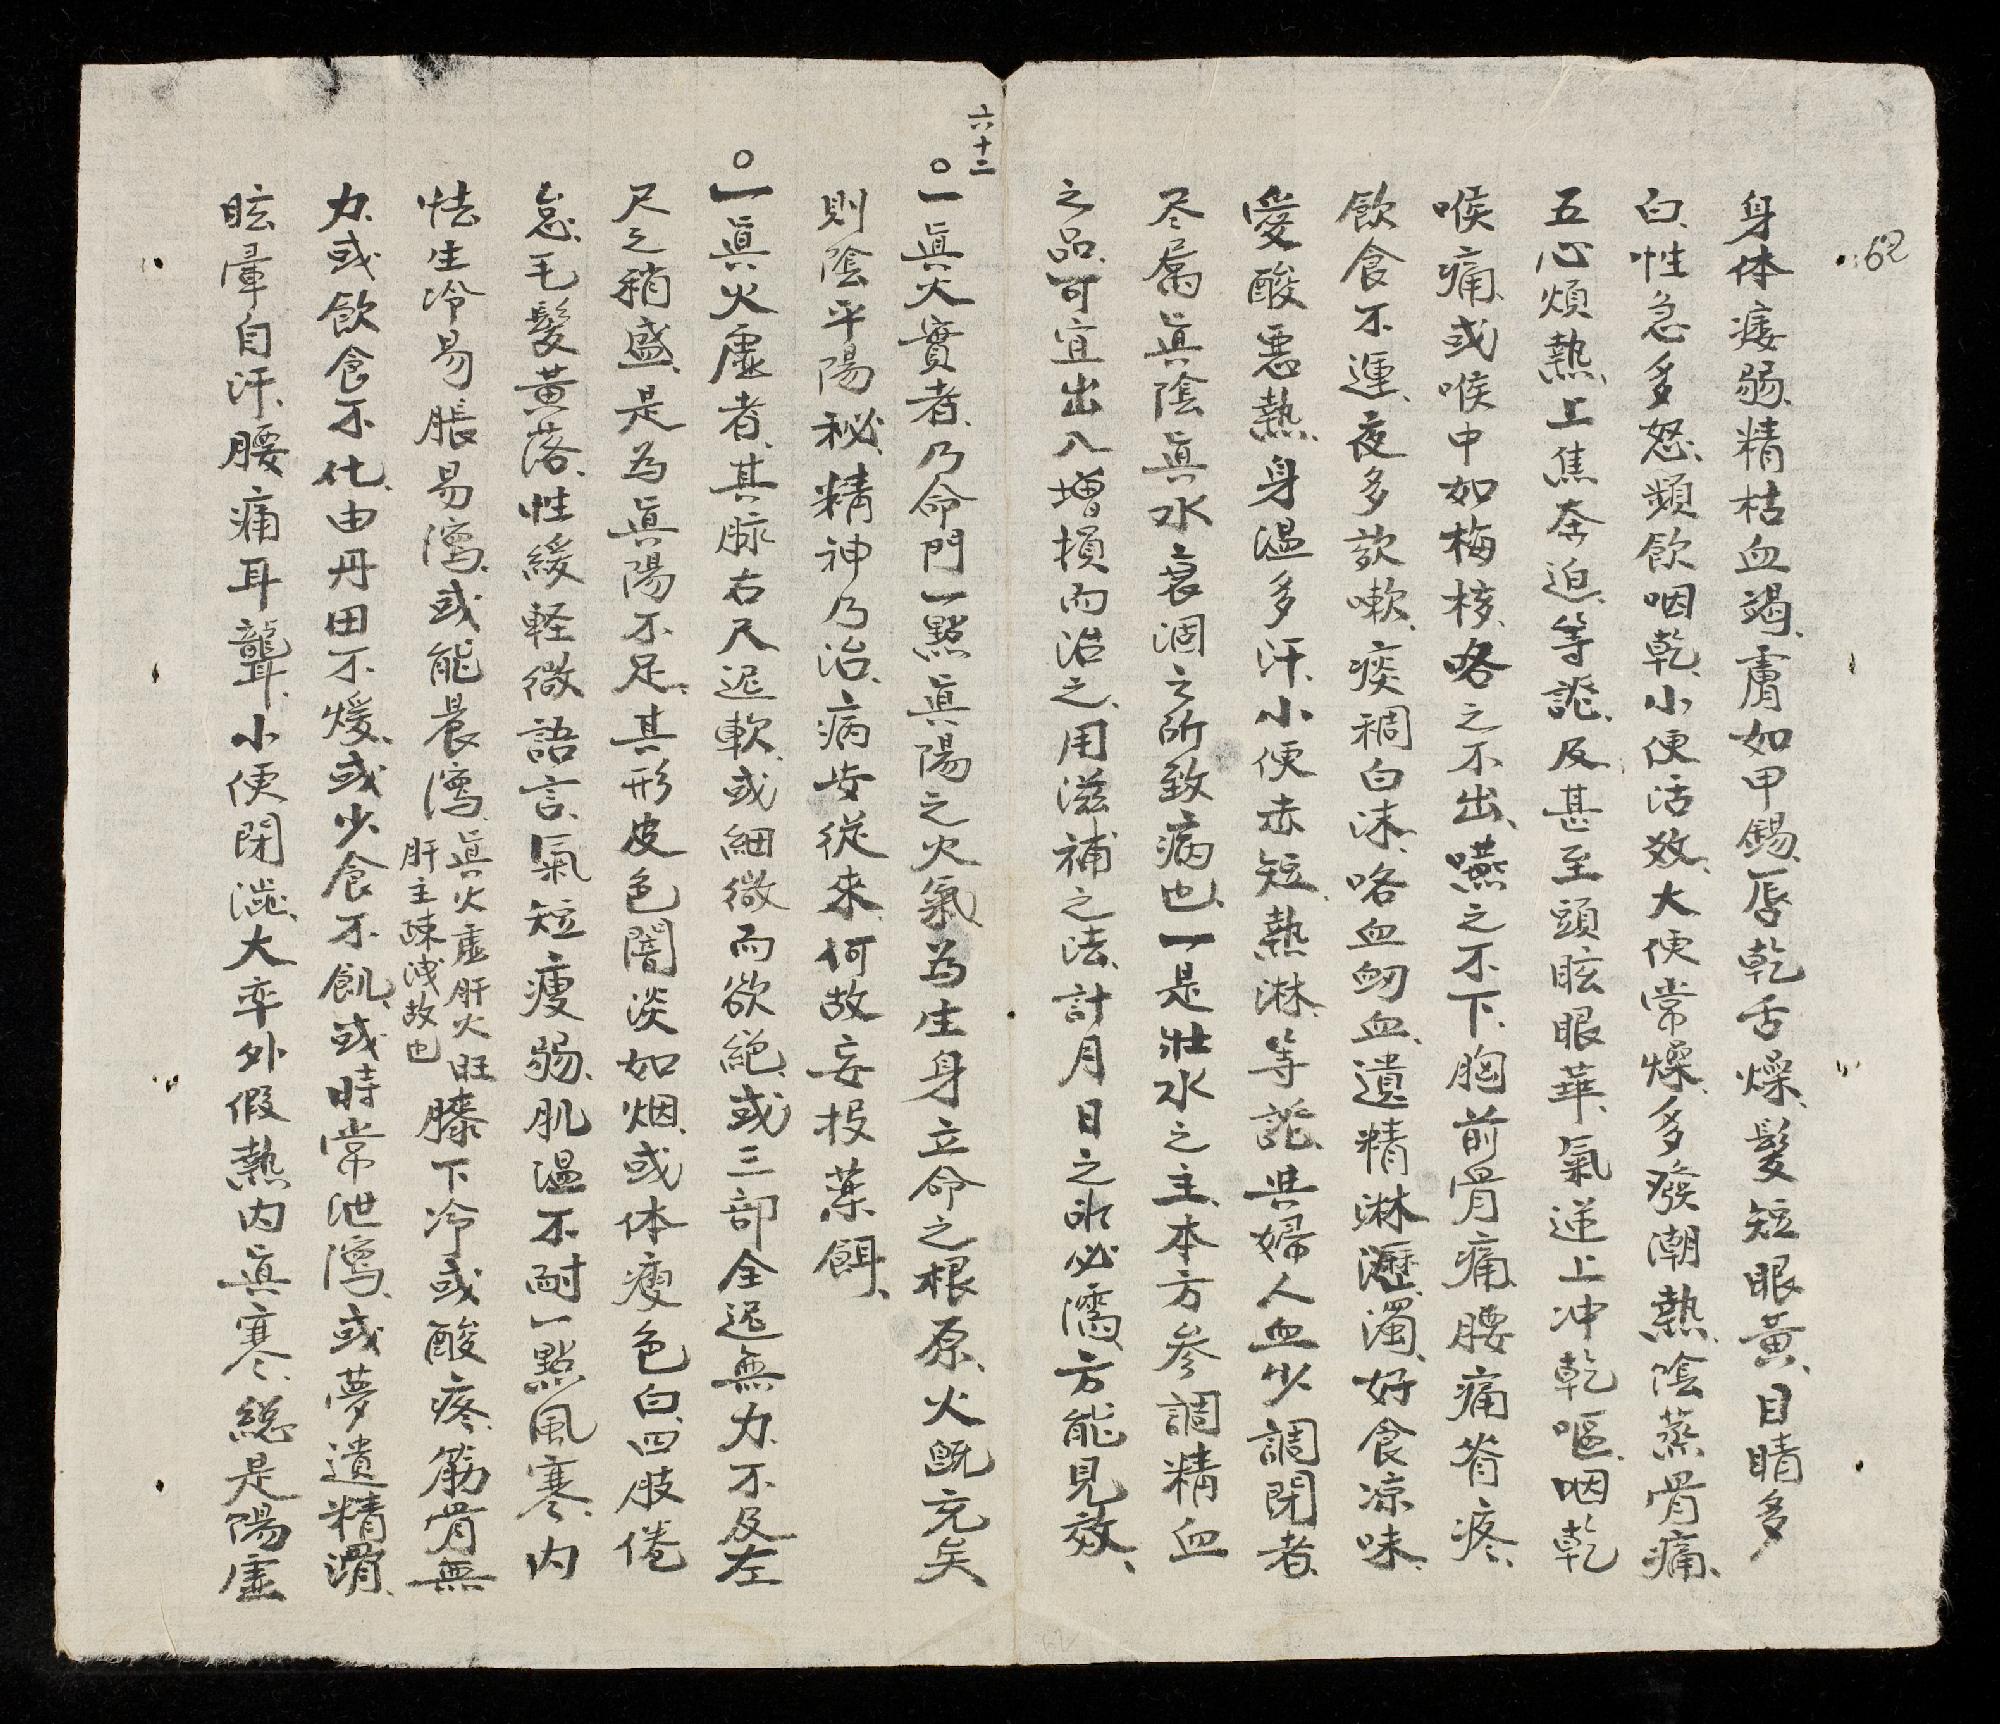 62
身体痿弱、精枯血竭、膚如甲錫、唇乾舌燥、髮短眼黃、目睛多
白、性急多怒、頻飲咽乾、小便活数、大便常燥、多癈潮熱、陰蒸骨痛、
五心煩熱、上焦奔迫、等證、及甚至頭眩眼華、氣逆上冲乾嘔、咽乾
喉痛、或喉中如梅核、咯之不出、嚥之不下、胸前骨痛、腰痛脊疼、
飲食不運、夜多欬嗽、痰稠白沫、咯血衂血、遺精淋瀝、濁、好食凉味、
愛酸惡熱、身温多汗、小便赤短、熱淋、等證、與婦人血少調閉者、
尽属眞陰眞水衰涸之所致病也、一是壯水之主、本方参調精血
之品、可宜出入增損而治之、用滋補之法、計月日之所必濡、方能見效、
六十二
○一眞火實者、乃命門一點眞陽之火氣、為生身立命之根原、火既充矣、
則陰平陽秘、精神乃治、病安從来、何故妄投藥餌、
○一眞火虛者、其脉右尺遅軟、或細微而欲絕、或三部全遅無力、不及左
尺之稍盛、是為眞陽不足、其形皮色闇淡如烟、或体瘦色白、四肢倦
怠、毛髮黃落、性緩軽微語言、氣短瘦弱、肌温不耐一點風寒、内
怯生冷易脹易瀉、或能晨瀉、眞火虛肝火旺肝主疎洩故也膝下冷或酸疼、筋骨無
力、或飲食不化、由丹田不煖、或少食不飢、或時常泄瀉、或夢遺精滑、
眩暈自汗、腰痛耳聾、小便閉澁、大卒外假熱内眞寒、総是陽虛